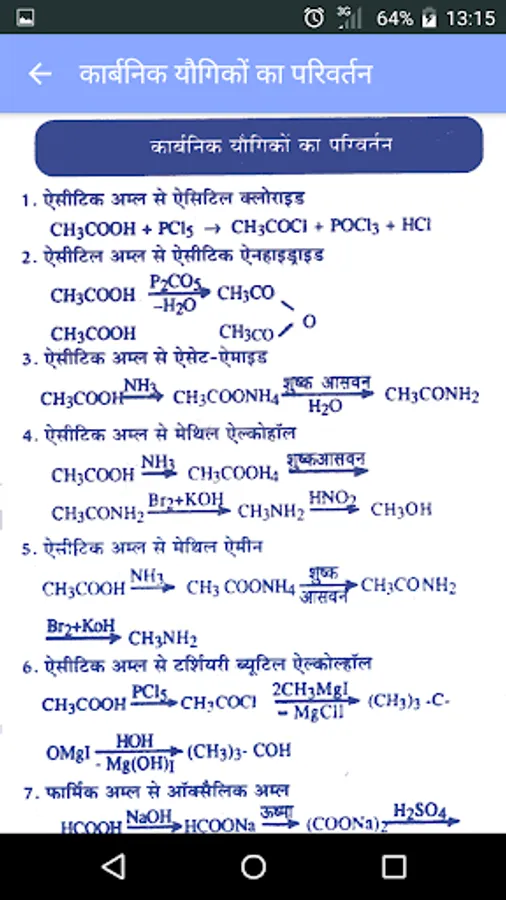 3G 64% 13:15
कार्बनिक यौगिकों का परिवर्तन
कार्बनिक यौगिकों का परिवर्तन
1. ऐसीटिक अम्ल से ऐसिटिल क्लोराइड
CH3COOH + PCl5 → CH3COCl + POCl3 + HCl
2. ऐसीटिल अम्ल से ऐसीटिक ऐनहाइड्राइड
CH3COOH P2CO5 –H2O CH3CO
O
CH3COOH CH3CO
3. ऐसीटिक अम्ल से ऐसेट-ऐमाइड
CH3COOH NH3 CH3COONH4 शुष्क आसवन H2O CH3CONH2
4. ऐसीटिक अम्ल से मेथिल ऐल्कोहॉल
CH3COOH NH3 CH3COOH4 शुष्कआसवन
CH3CONH2 Br2+KOH CH3NH2 HNO2 CH3OH
5. ऐसीटिक अम्ल से मेथिल ऐमीन
CH3COOH NH3 CH3 COONH4 शुष्क आसवन CH3CONH2
Br2+KoH CH3NH2
6. ऐसीटिक अम्ल से टर्शियरी ब्यूटिल ऐल्कोल्हॉल
CH3COOH PCl5 CH3COCl 2CH3MgI – MgClI (CH3)3 -C-
OMgI HOH - Mg(OH)I (CH3)3- COH
7. फार्मिक अम्ल से ऑक्सैलिक अम्ल
HCOOH NaOH HCOONa ऊष्मा (COONa)2 H2SO4